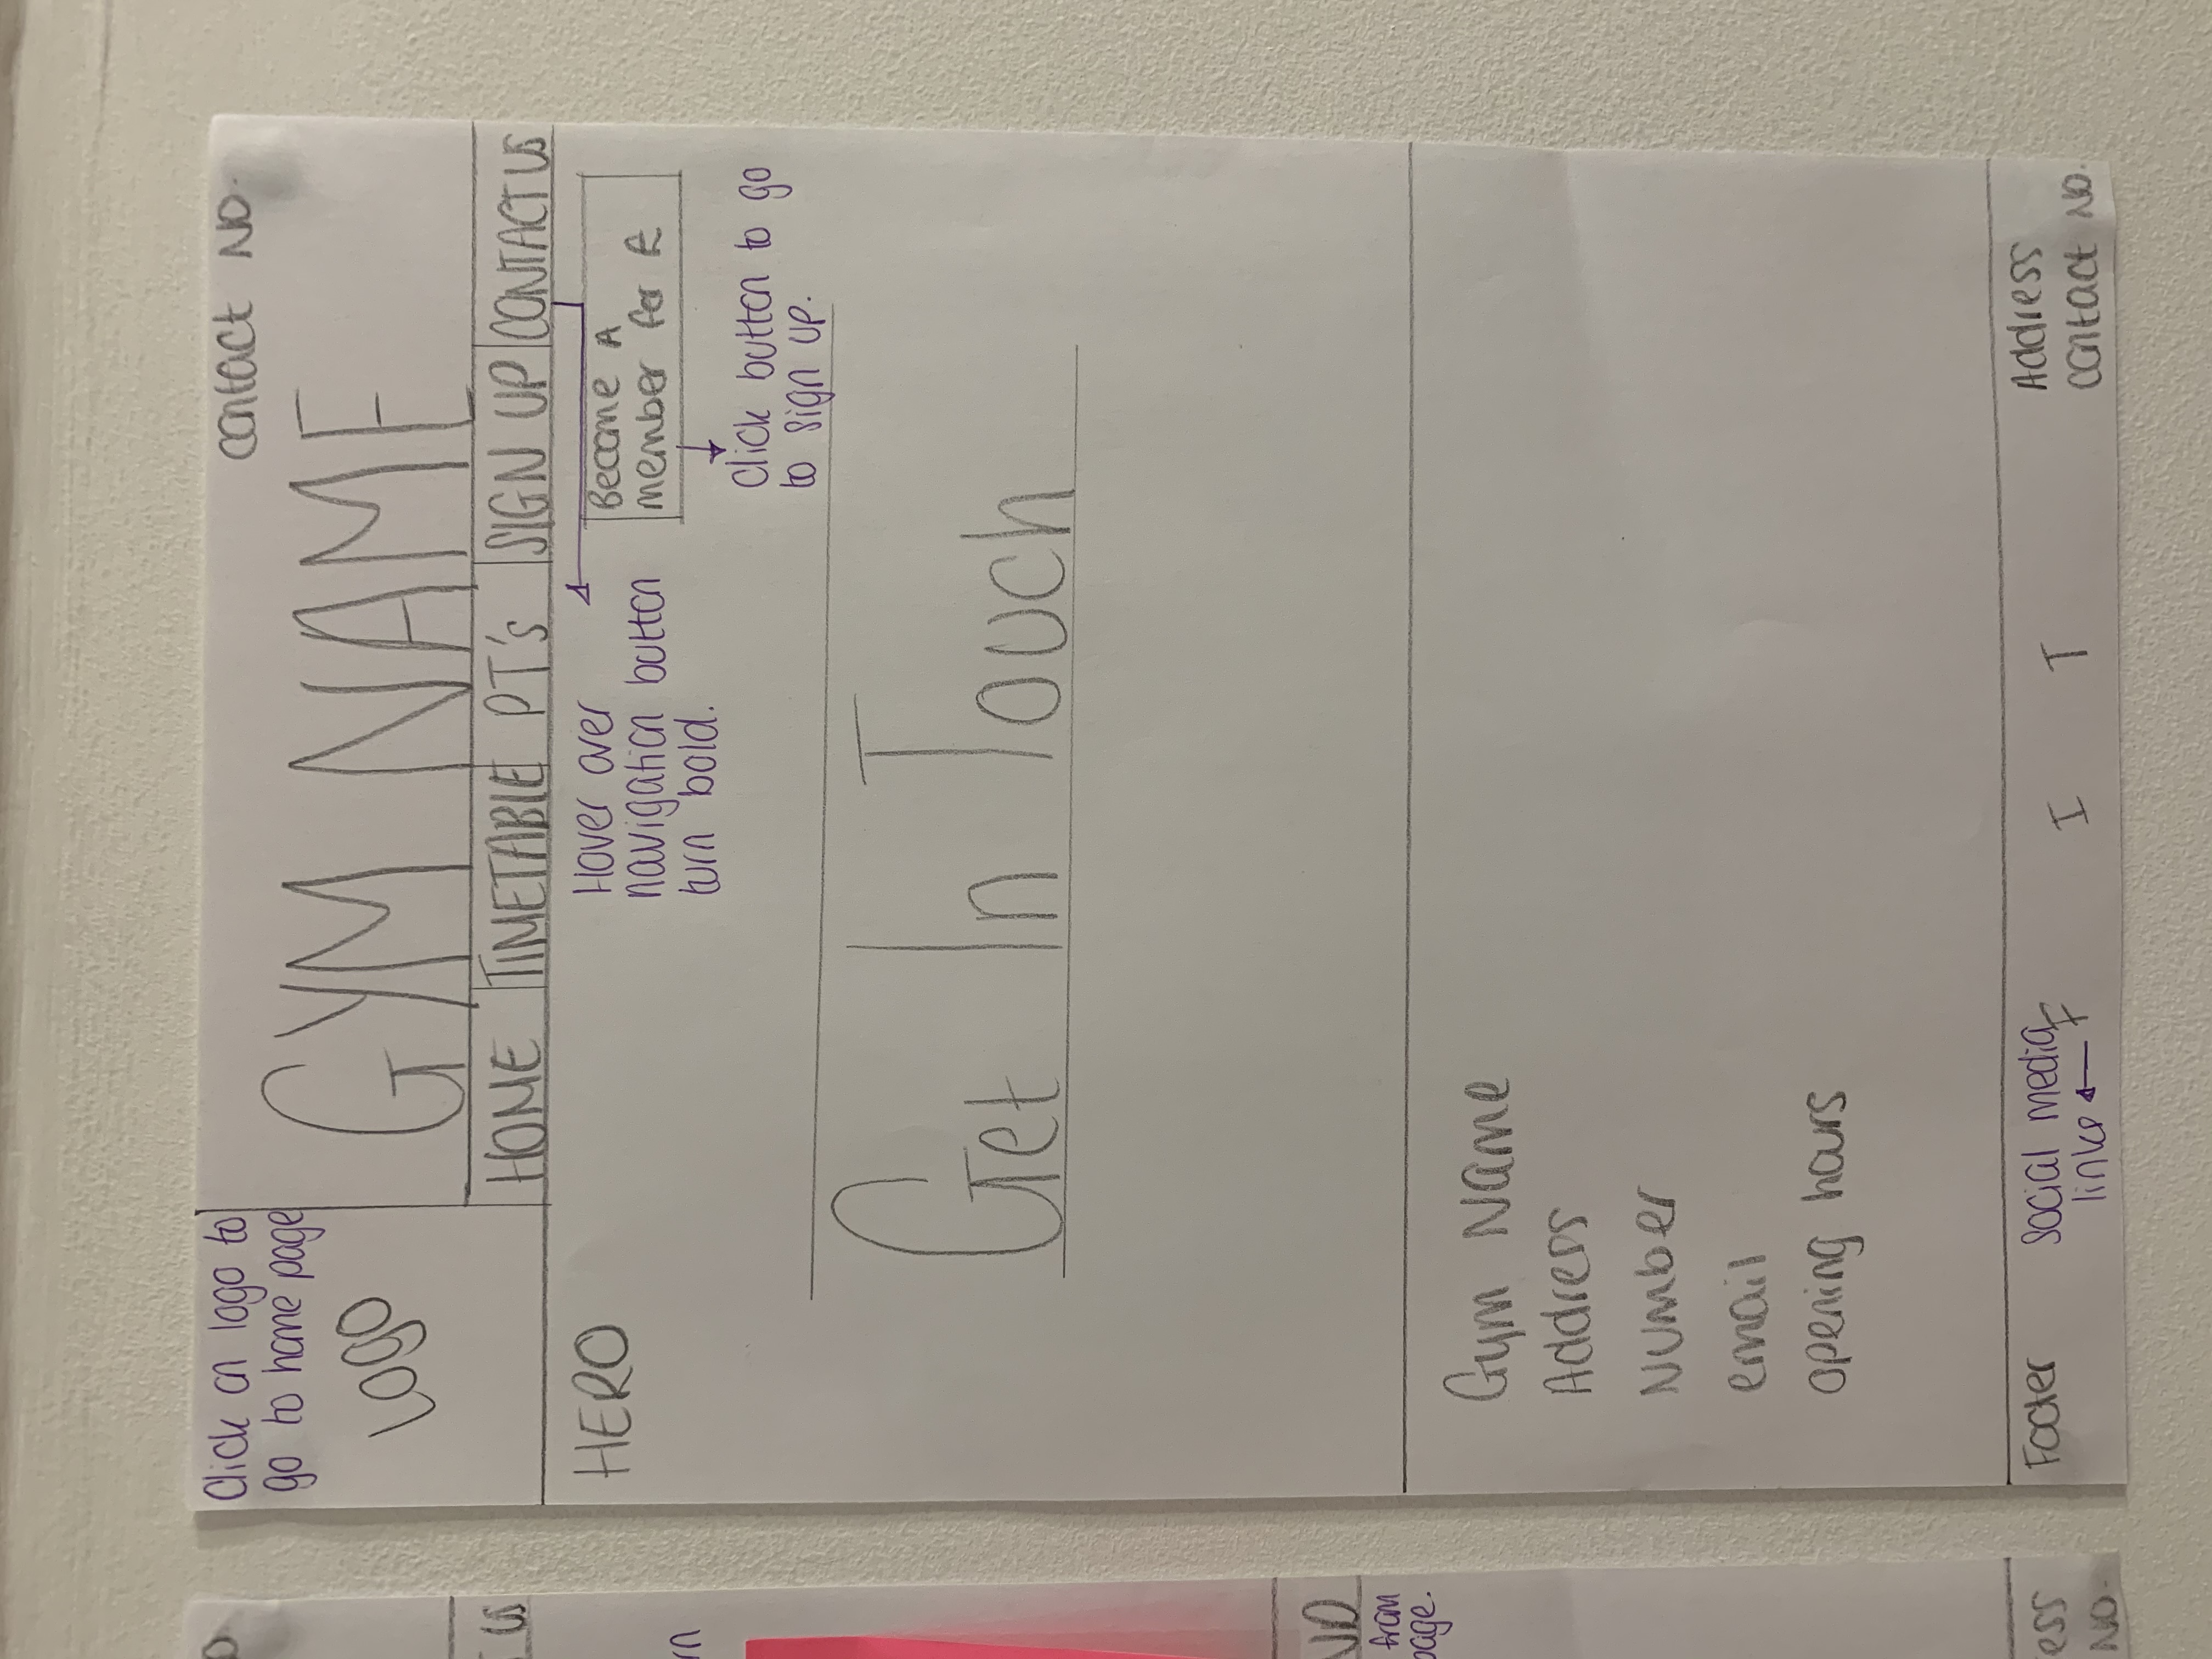 Click on logo to
go to home page
Logo
contact NO.
GYM NAME
HOME
TIMETABLE
PT's
SIGN UP
CONTACT US
HERO
Hover over
navigation button
turn bold.
Become A
member for £
Click button to go
to sign up.
Get In Touch
Gym Name
Address
Number
email
opening hours
Footer
Social media
links
F
I
T
Address
contact NO.
US
from
page.
NO.